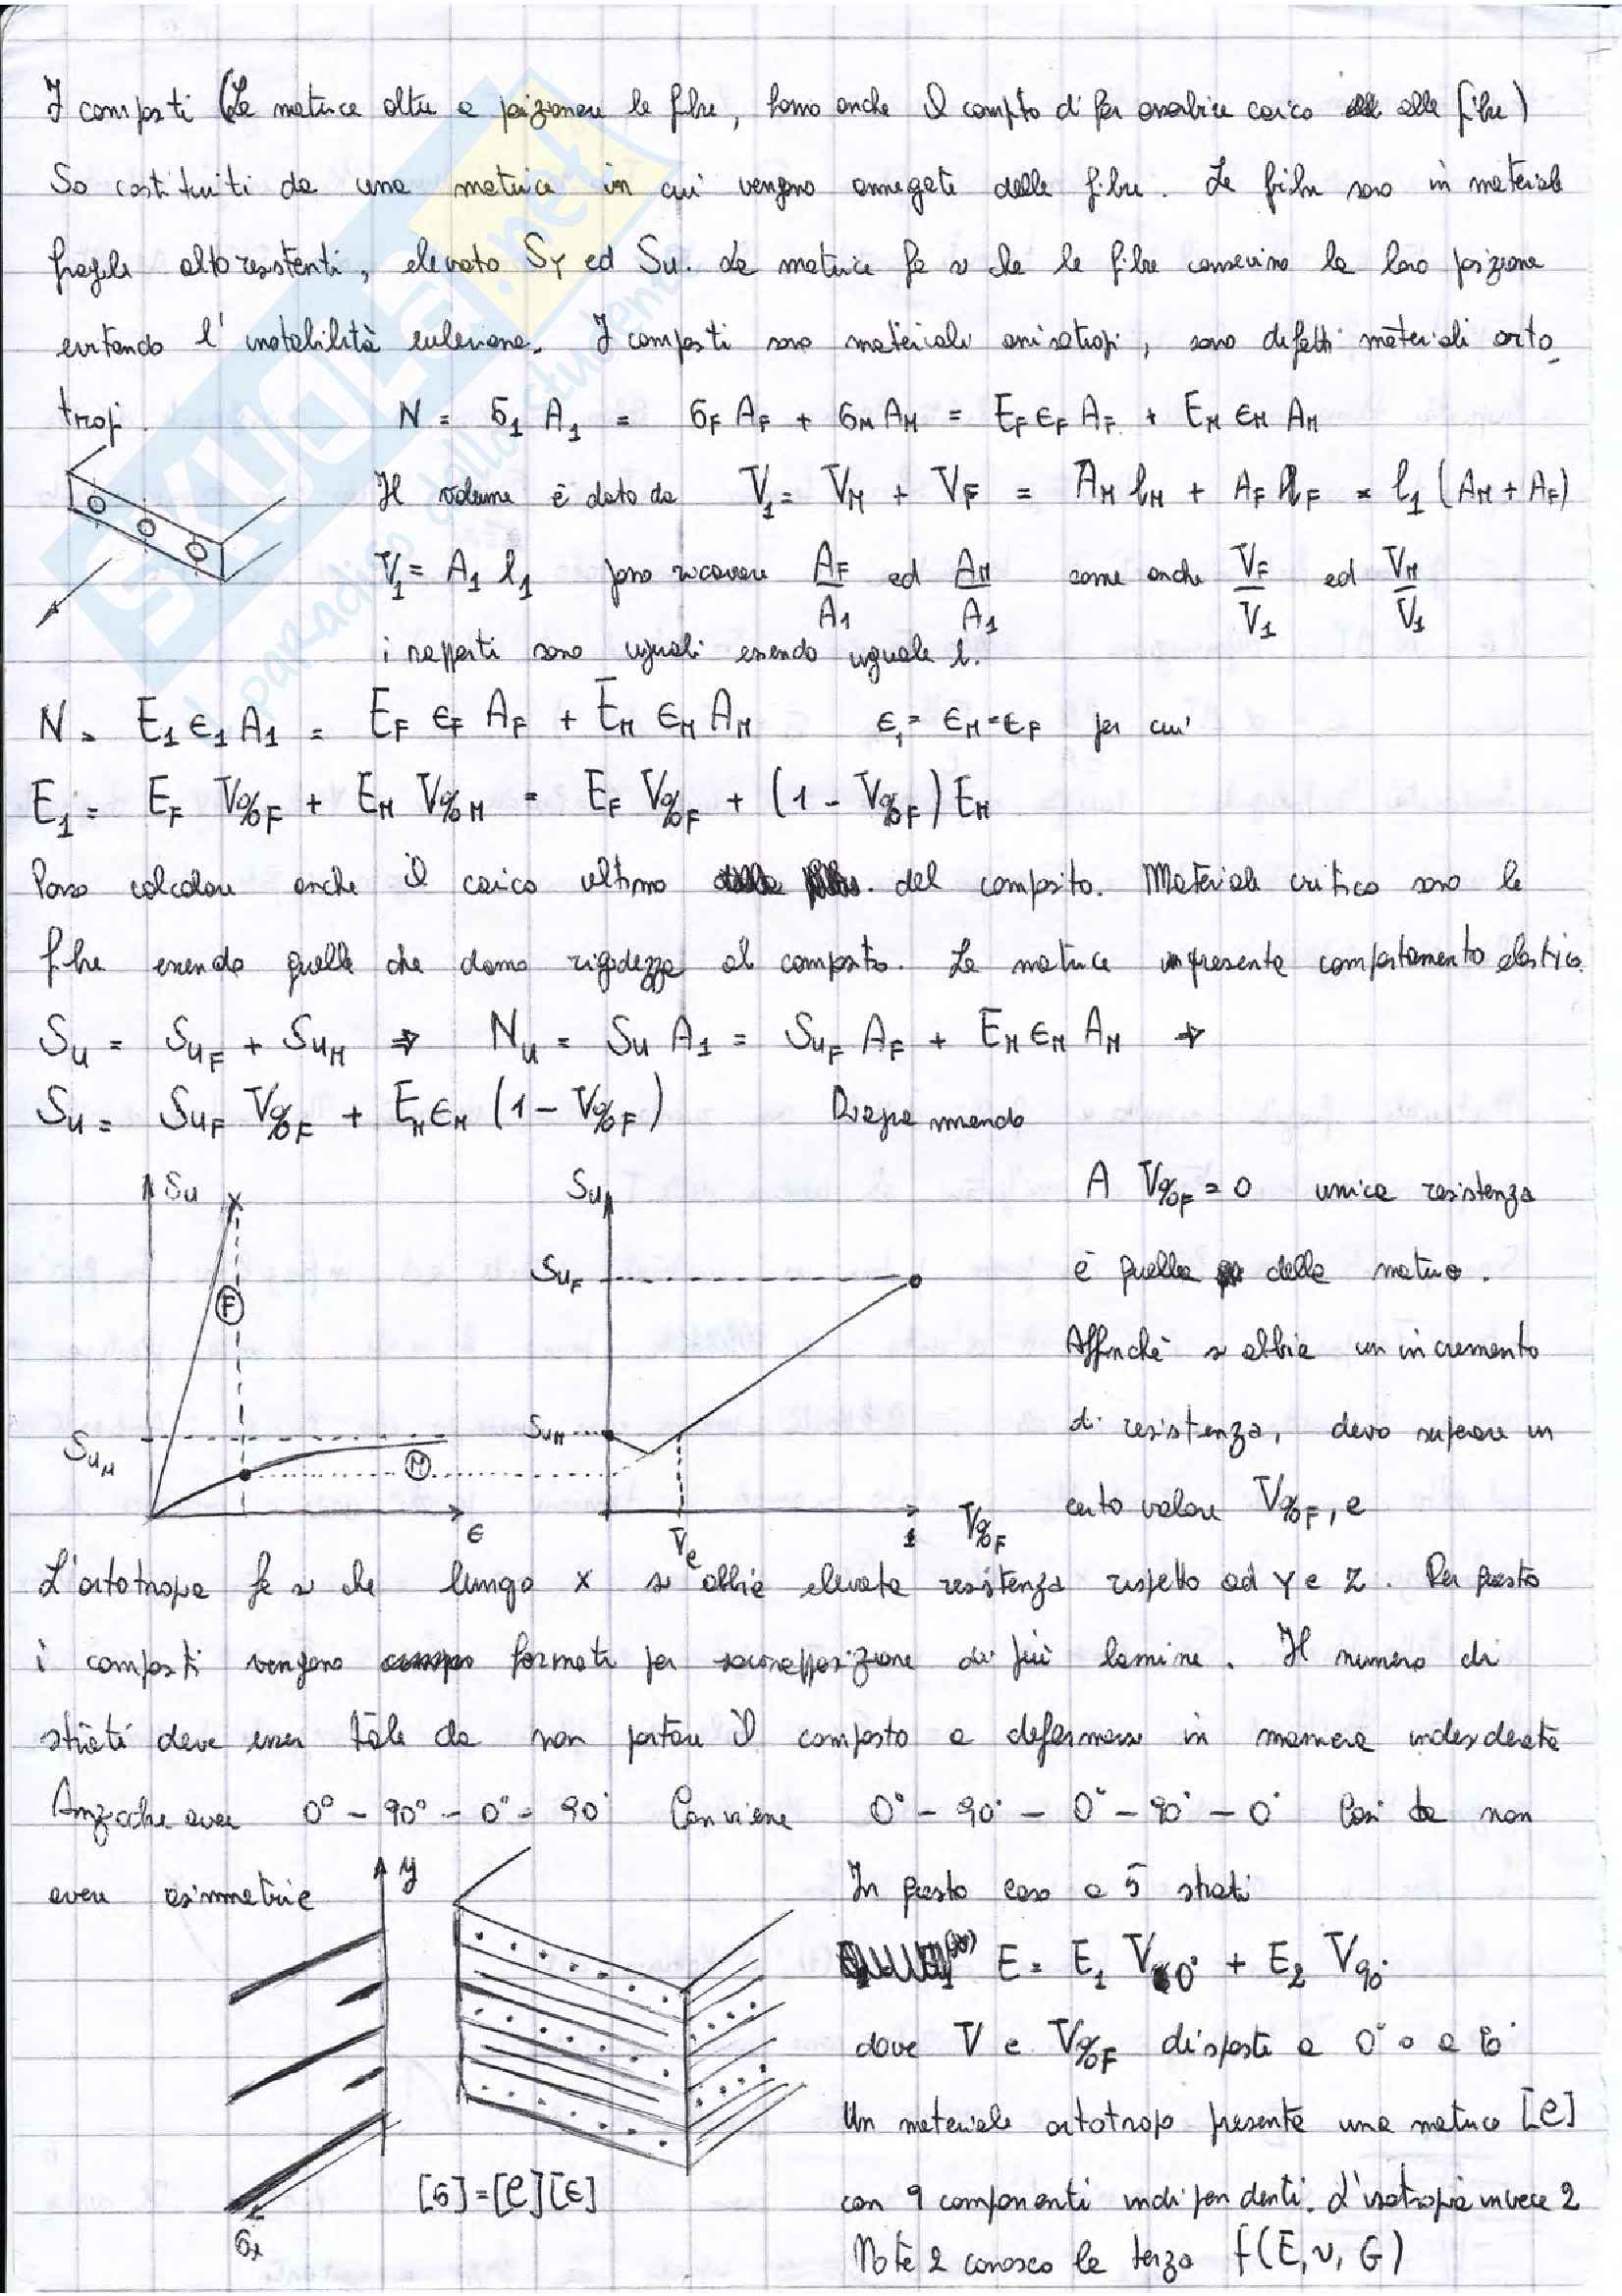 I composti (La matrice oltre a posizionare le fibre, hanno anche il compito di far assorbire carico alle fibre)
So costituiti da una matrice in cui vengono annegate delle fibre. Le fibre sono in materiale
fragile altoresistenti, elevato Sy ed Su. La matrice fa si che le fibre conservino la loro posizione
evitando l'instabilità euleriana. I composti sono materiali anisotropi, sono difatti materiali orto_
tropi.
N = σ1 A1 = σF AF + σM AM = EF εF AF + EM εM AM
Il volume è dato da V1 = VM + VF = AM lM + AF lF = l1 (AM + AF)
V1 = A1 l1 posso ricavare AF/A1 ed AM/A1 come anche VF/V1 ed VM/V1
i rapporti sono uguali essendo uguale l.
N = E1 ε1 A1 = EF εF AF + EM εM AM ε1 = εM = εF per cui
E1 = EF V%F + EM V%M = EF V%F + (1 - V%F) EM
Posso calcolare anche il carico ultimo del composito. Materiale critico sono le
fibre essendo quelle che danno rigidezza al composto. La matrice presenta comportamento elastico.
Su = SuF + SuM ⇒ Nu = Su A1 = SuF AF + EM εM AM ⇒
Su = SuF V%F + EM εM (1 - V%F) Diagrammando
Su
F
SuM
M
ε
Su
SuF
SuM
Ve
1
V%F
A V%F = 0 unica resistenza
è quella della matrice.
Affinchè si abbia un incremento
di resistenza, devo superare un
certo valore V%F, e
L'ortotropia fa si che lungo x si abbia elevata resistenza rispetto ad y e z. Per questo
i composti vengono formati per sovrapposizione di più lamine. Il numero di
strati deve esser tale da non portare il composto a deformarsi in maniera indesiderata
Anzichè aver 0° - 90° - 0° - 90° Conviene 0° - 90° - 0° - 90° - 0° Così da non
avere asimmetrie
y
σx
[σ] = [C][ε]
In questo caso a 5 strati
E = E1 V0° + E2 V90°
dove V è V%F disposte a 0° o a 90°
Un materiale ortotropo presenta una matrice [C]
con 9 componenti indipendenti. L'isotropia invece 2
Note 2 conosco la terza f(E, ν, G)
SKUOLA.net
il paradiso dello studente